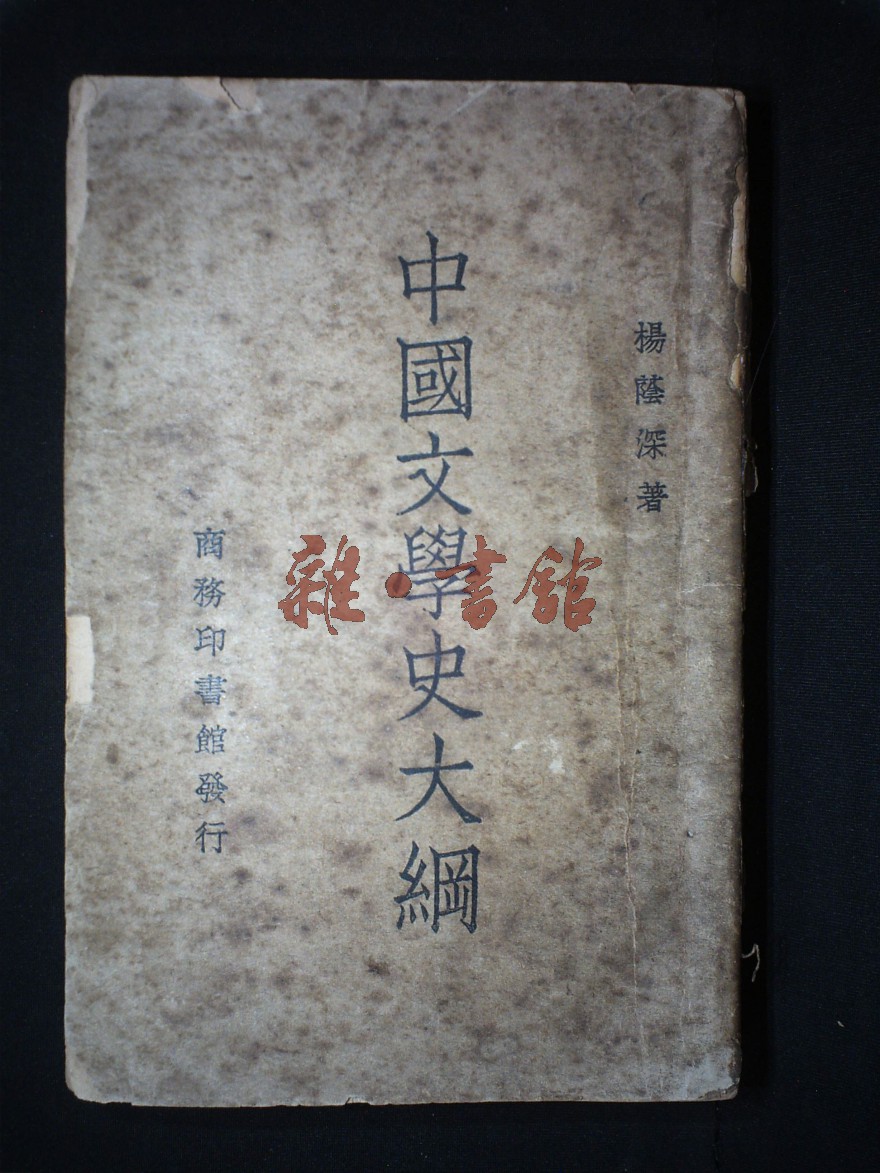 楊蔭深著
中國文學史大綱
商務印書館發行
雜·書館